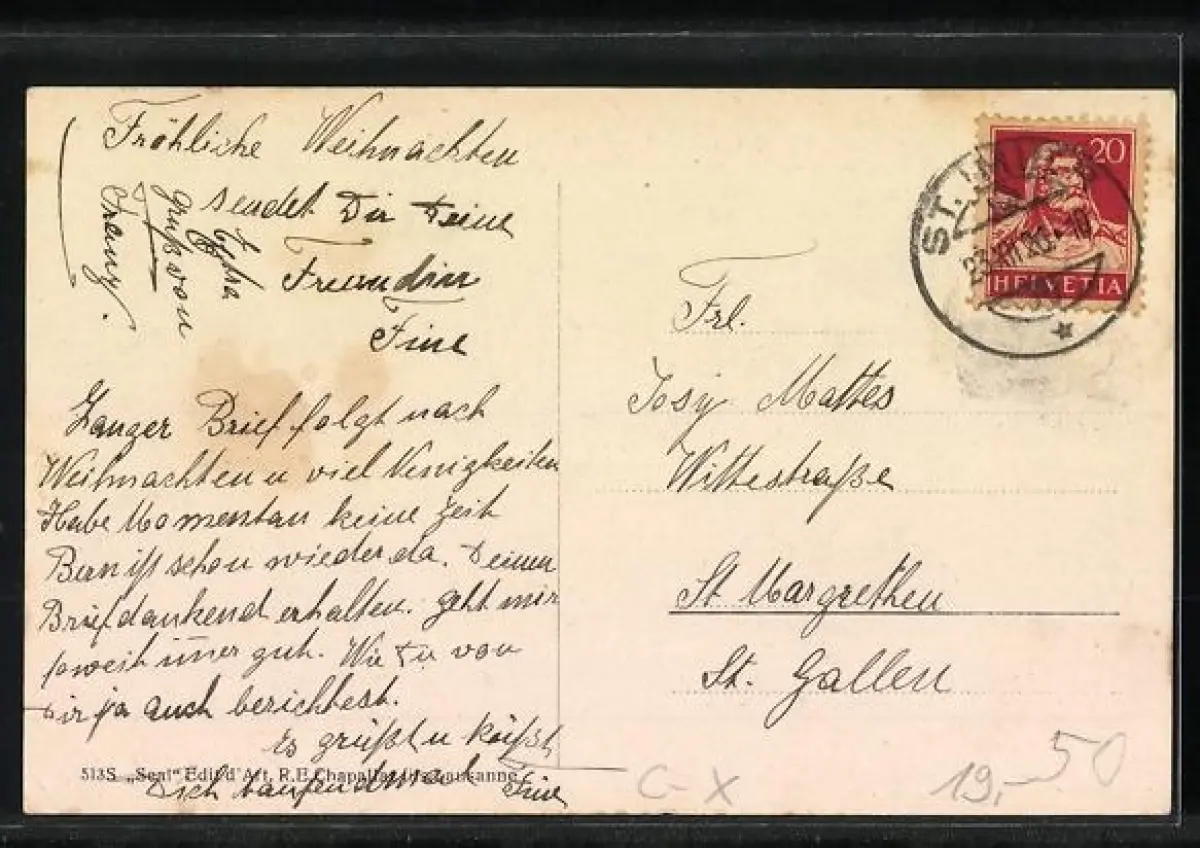 Fröhliche Weihnachten
sendet Dir Deine
Freundin
Fine
Extra
Gruß von
Franz.
Langer Brief folgt nach
Weihnachten u viel Neuigkeiten
Habe Momentan keine Zeit
Bin iſſ schon wieder da. Deinen
Brief dankend erhalten. geht mir
soweit im̄er gut. Wie Du von
Dir ja auch berichtest.
Es grüßt u küßt
Dich tausendmal Fine
513S „Seal" Edit d'Art, R.E. Chapallaz fils Lausanne
20
HELVETIA
ST.
Frl.
Josy Mattes
Wittestraße
St Margrethen
St. Gallen
C-X
19,-
50